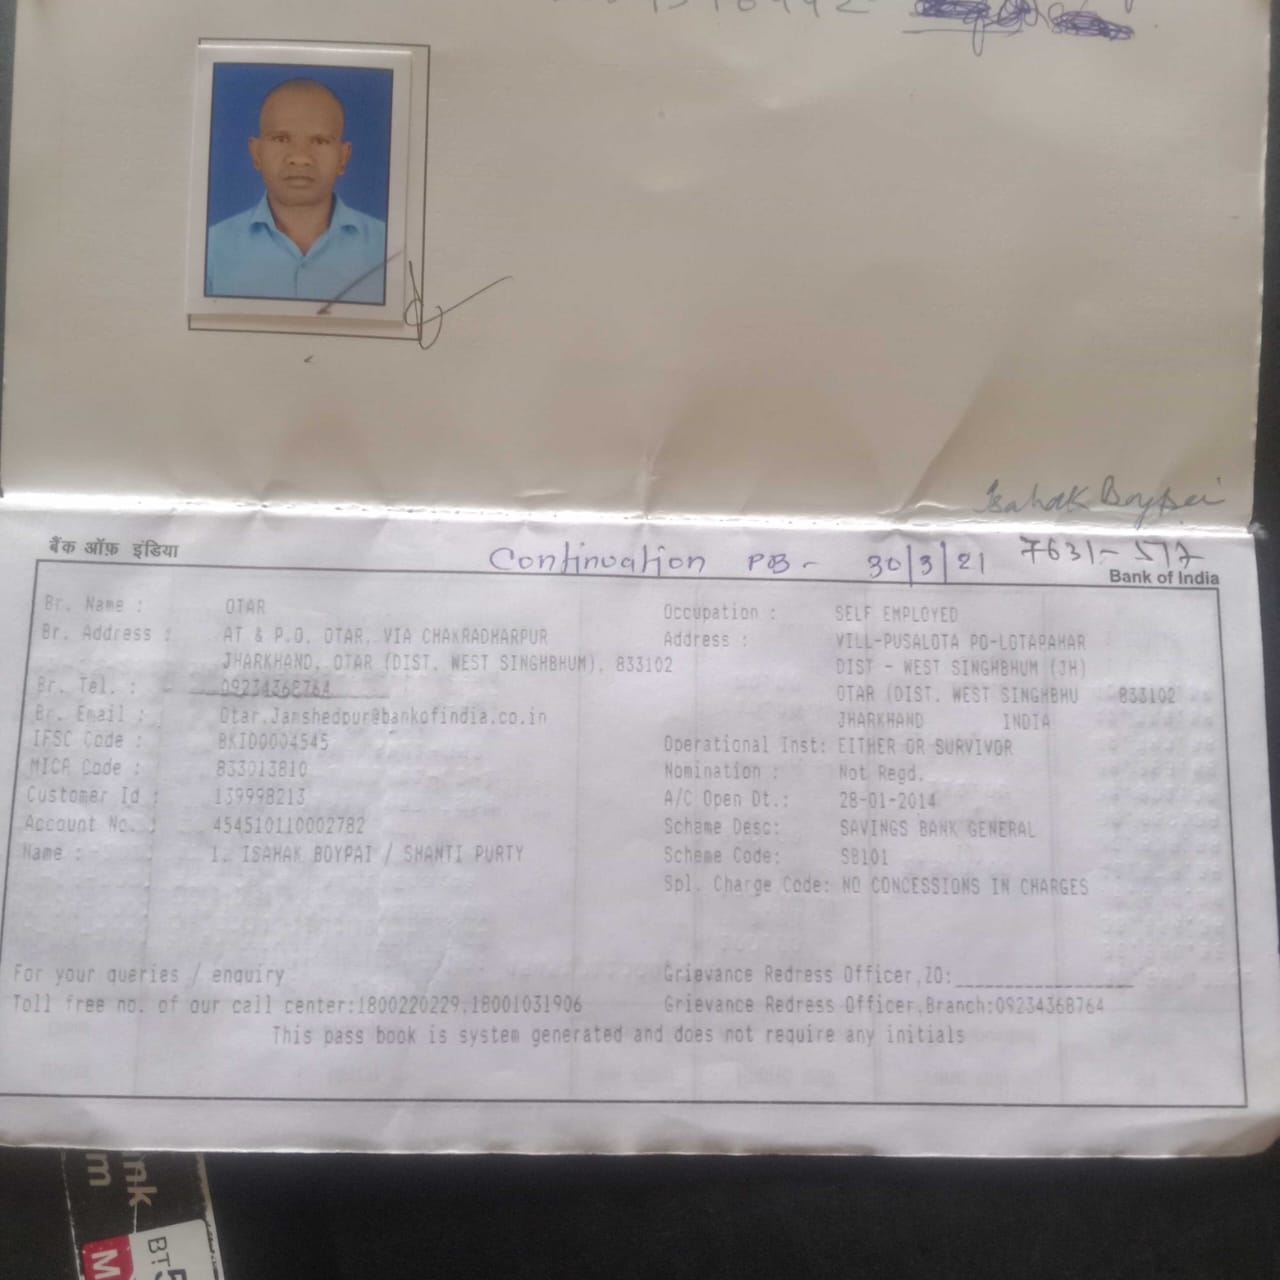 Isahak Boypai
बैंक ऑफ़ इंडिया
Continuation PB - 30/3/21 7631-577
Bank of India
Br. Name : OTAR
Br. Address : AT & P.O. OTAR, VIA CHAKRADHARPUR
JHARKHAND, OTAR (DIST. WEST SINGHBHUM), 833102
Br. Tel. : 09234368764
Br. Email : Otar.Jamshedpur@bankofindia.co.in
IFSC Code : BKID0004545
MICR Code : 833013810
Customer Id : 139998213
Account No. : 454510110002782
Name : 1. ISAHAK BOYPAI / SHANTI PURTY
Occupation : SELF EMPLOYED
Address : VILL-PUSALOTA PO-LOTAPAHAR
DIST - WEST SINGHBHUM (JH)
OTAR (DIST. WEST SINGHBHU 833102
JHARKHAND INDIA
Operational Inst: EITHER OR SURVIVOR
Nomination : Not Regd.
A/C Open Dt.: 28-01-2014
Scheme Desc: SAVINGS BANK GENERAL
Scheme Code: SB101
Spl. Charge Code: NO CONCESSIONS IN CHARGES
For your queries / enquiry
Toll free no. of our call center:1800220229,18001031906
Grievance Redress Officer,ZO:
Grievance Redress Officer,Branch:09234368764
This pass book is system generated and does not require any initials